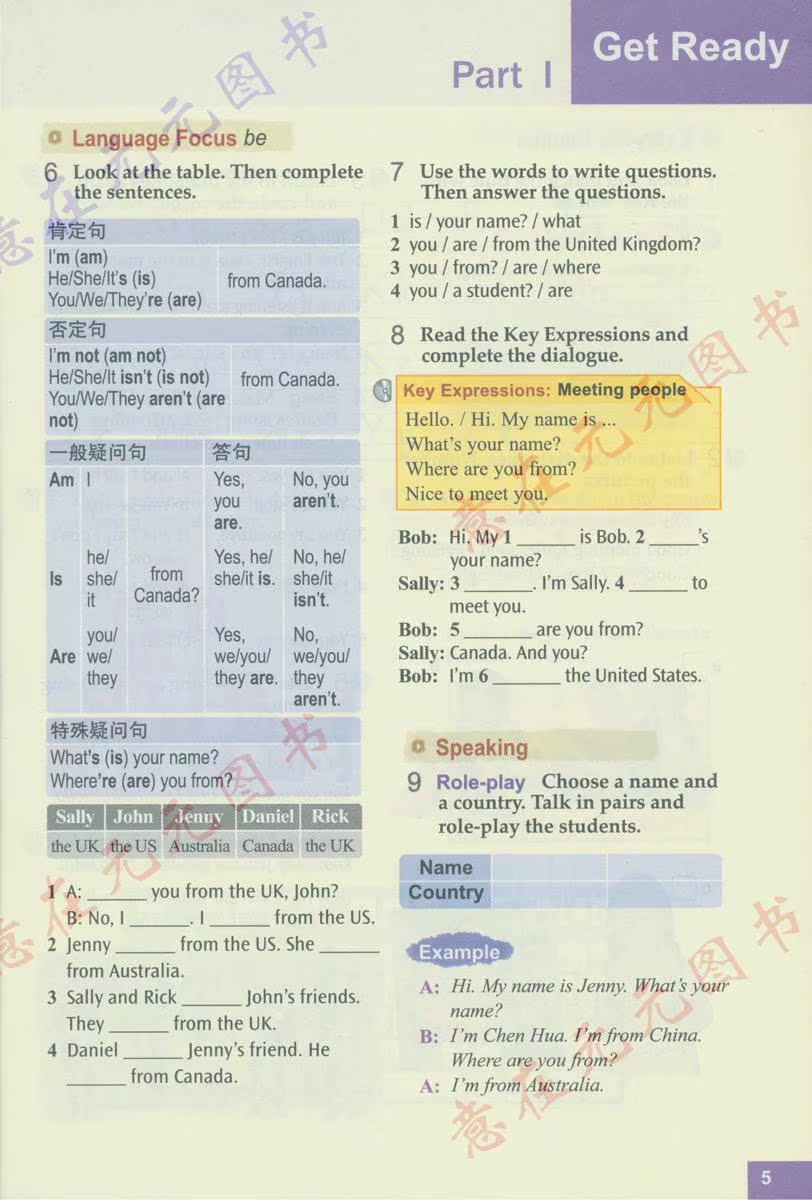 Get Ready
Part I
Language Focus be
6 Look at the table. Then complete
the sentences.
肯定句
I'm (am)
He/She/It's (is)
You/We/They're (are)
from Canada.
否定句
I'm not (am not)
He/She/It isn't (is not)
You/We/They aren't (are
not)
from Canada.
一般疑问句 答句
Am I
Yes,
you
are.
No, you
aren't.
Is
he/
she/
it
from
Canada?
Yes, he/
she/it is.
No, he/
she/it
isn't.
Are
you/
we/
they
Yes,
we/you/
they are.
No,
we/you/
they
aren't.
特殊疑问句
What's (is) your name?
Where're (are) you from?
Sally John Jenny Daniel Rick
the UK the US Australia Canada the UK
1 A: ______ you from the UK, John?
B: No, I ______. I ______ from the US.
2 Jenny ______ from the US. She ______
from Australia.
3 Sally and Rick ______ John's friends.
They ______ from the UK.
4 Daniel ______ Jenny's friend. He
______ from Canada.
7 Use the words to write questions.
Then answer the questions.
1 is / your name? / what
2 you / are / from the United Kingdom?
3 you / from? / are / where
4 you / a student? / are
8 Read the Key Expressions and
complete the dialogue.
Key Expressions: Meeting people
Hello. / Hi. My name is ...
What's your name?
Where are you from?
Nice to meet you.
Bob: Hi. My 1 ______ is Bob. 2 _____'s
your name?
Sally: 3 _______. I'm Sally. 4 ______ to
meet you.
Bob: 5 _______ are you from?
Sally: Canada. And you?
Bob: I'm 6 _______ the United States.
Speaking
9 Role-play Choose a name and
a country. Talk in pairs and
role-play the students.
Name
Country
Example
A: Hi. My name is Jenny. What's your
name?
B: I'm Chen Hua. I'm from China.
Where are you from?
A: I'm from Australia.
5
意在元元图书
意在元元图书
意在元元图书
意在元元图书